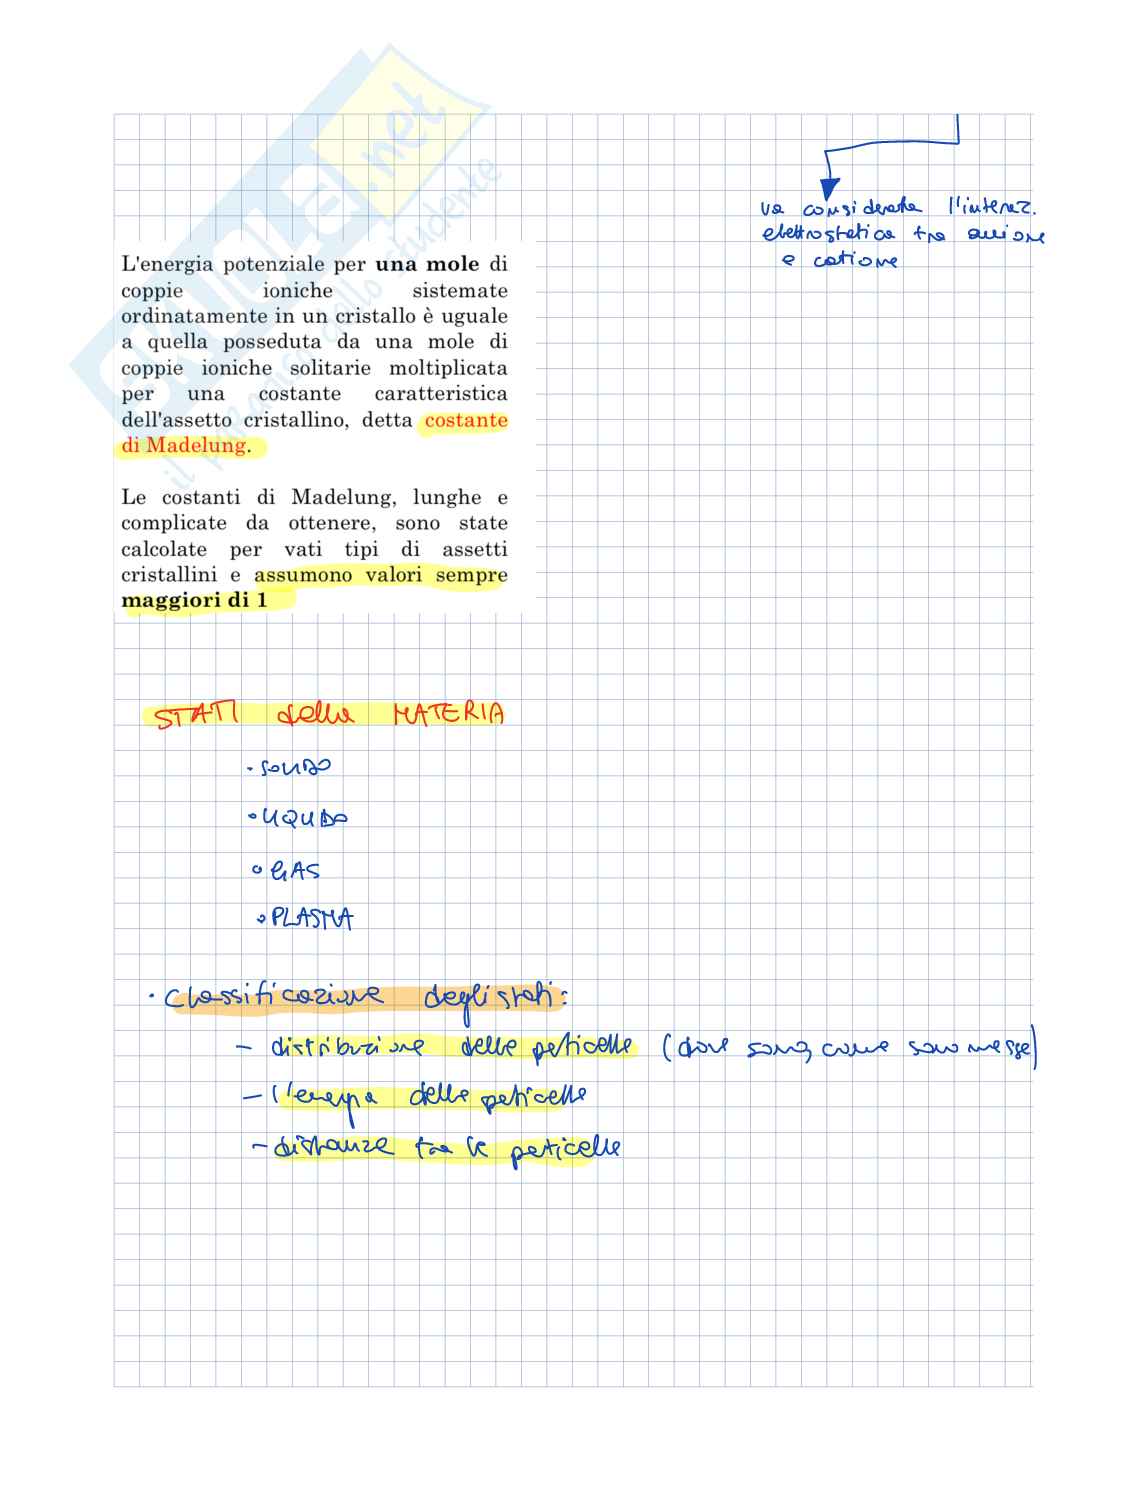 va considerata l'interaz.
elettrostatica tra anione
e catione
L'energia potenziale per una mole di
coppie ioniche sistemate
ordinatamente in un cristallo è uguale
a quella posseduta da una mole di
coppie ioniche solitarie moltiplicata
per una costante caratteristica
dell'assetto cristallino, detta costante
di Madelung.
Le costanti di Madelung, lunghe e
complicate da ottenere, sono state
calcolate per vati tipi di assetti
cristallini e assumono valori sempre
maggiori di 1
STATI della MATERIA
• SOLIDO
• LIQUIDO
• GAS
• PLASMA
• Classificazione degli stati:
- distribuzione delle particelle (dove sono, come sono messe)
- l'energia delle particelle
- distanze tra le particelle
SKUOLA.net
il paradiso dello studente